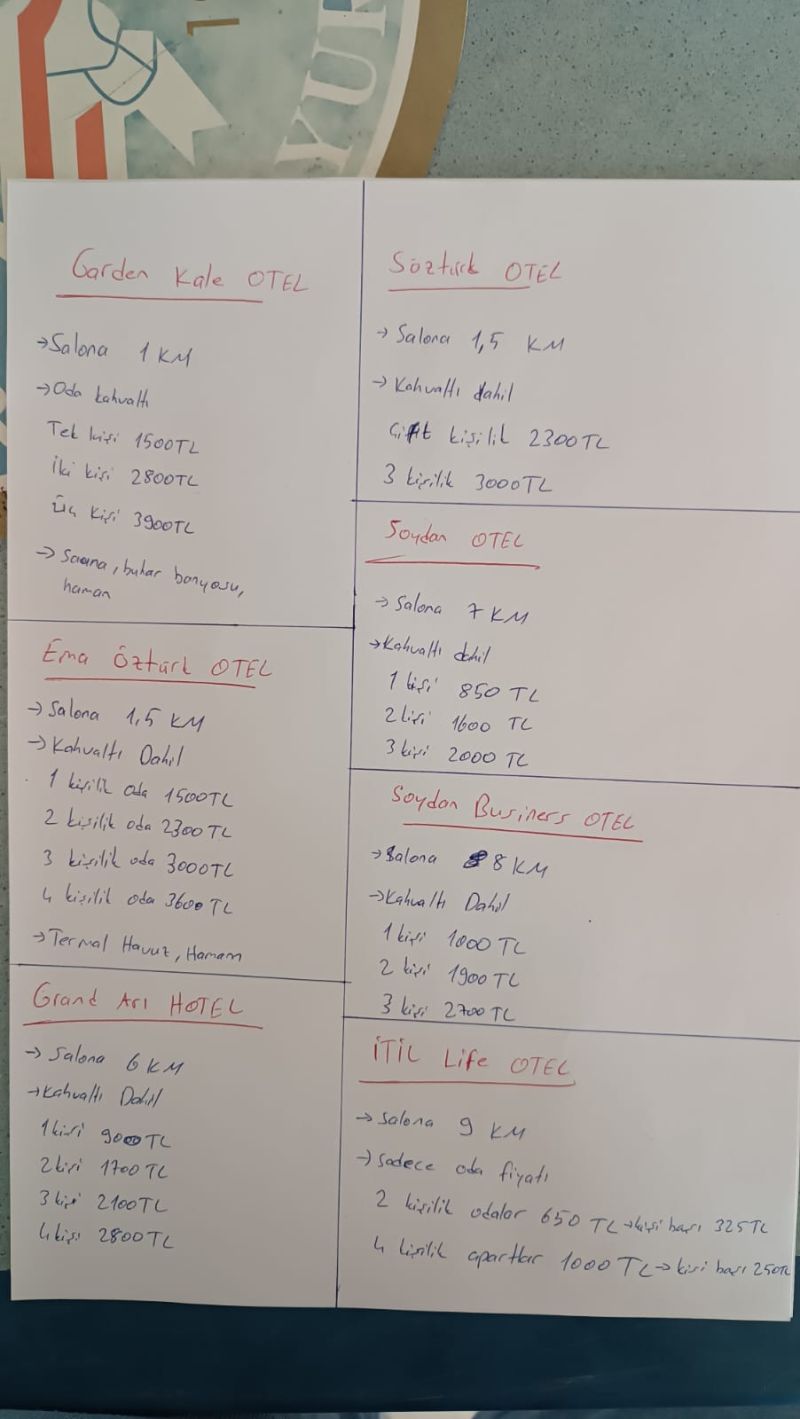 YUR
Garden Kale OTEL
→Salona 1 KM
→Oda kahvaltı
Tek kişi 1500TL
İki kişi 2800TL
Üç kişi 3900TL
→ Sauna, buhar banyosu,
hamam
Ema Öztürk OTEL
→ Salona 1,5 KM
→ Kahvaltı Dahil
1 kişilik oda 1500TL
2 kişilik oda 2300TL
3 kişilik oda 3000TL
4 kişilik oda 3600TL
→Termal Havuz, Hamam
Grand Arı HOTEL
→ Salona 6 KM
→Kahvaltı Dahil
1 kişi 900TL
2 kişi 1700TL
3 kişi 2100TL
4 kişi 2800TL
Söztürk OTEL
→ Salona 1,5 KM
→ Kahvaltı dahil
Çift kişilik 2300TL
3 kişilik 3000TL
Soydan OTEL
→ Salona 7 KM
→Kahvaltı dahil
1 kişi 850 TL
2 kişi 1600 TL
3 kişi 2000 TL
Soydan Business OTEL
→Salona 8 KM
→Kahvaltı Dahil
1 kişi 1000 TL
2 kişi 1900 TL
3 kişi 2700 TL
İTİL Life OTEL
→ Salona 9 KM
→ Sadece oda fiyatı
2 kişilik odalar 650 TL→kişi başı 325TL
4 kişilik apartlar 1000 TL→ kişi başı 250TL